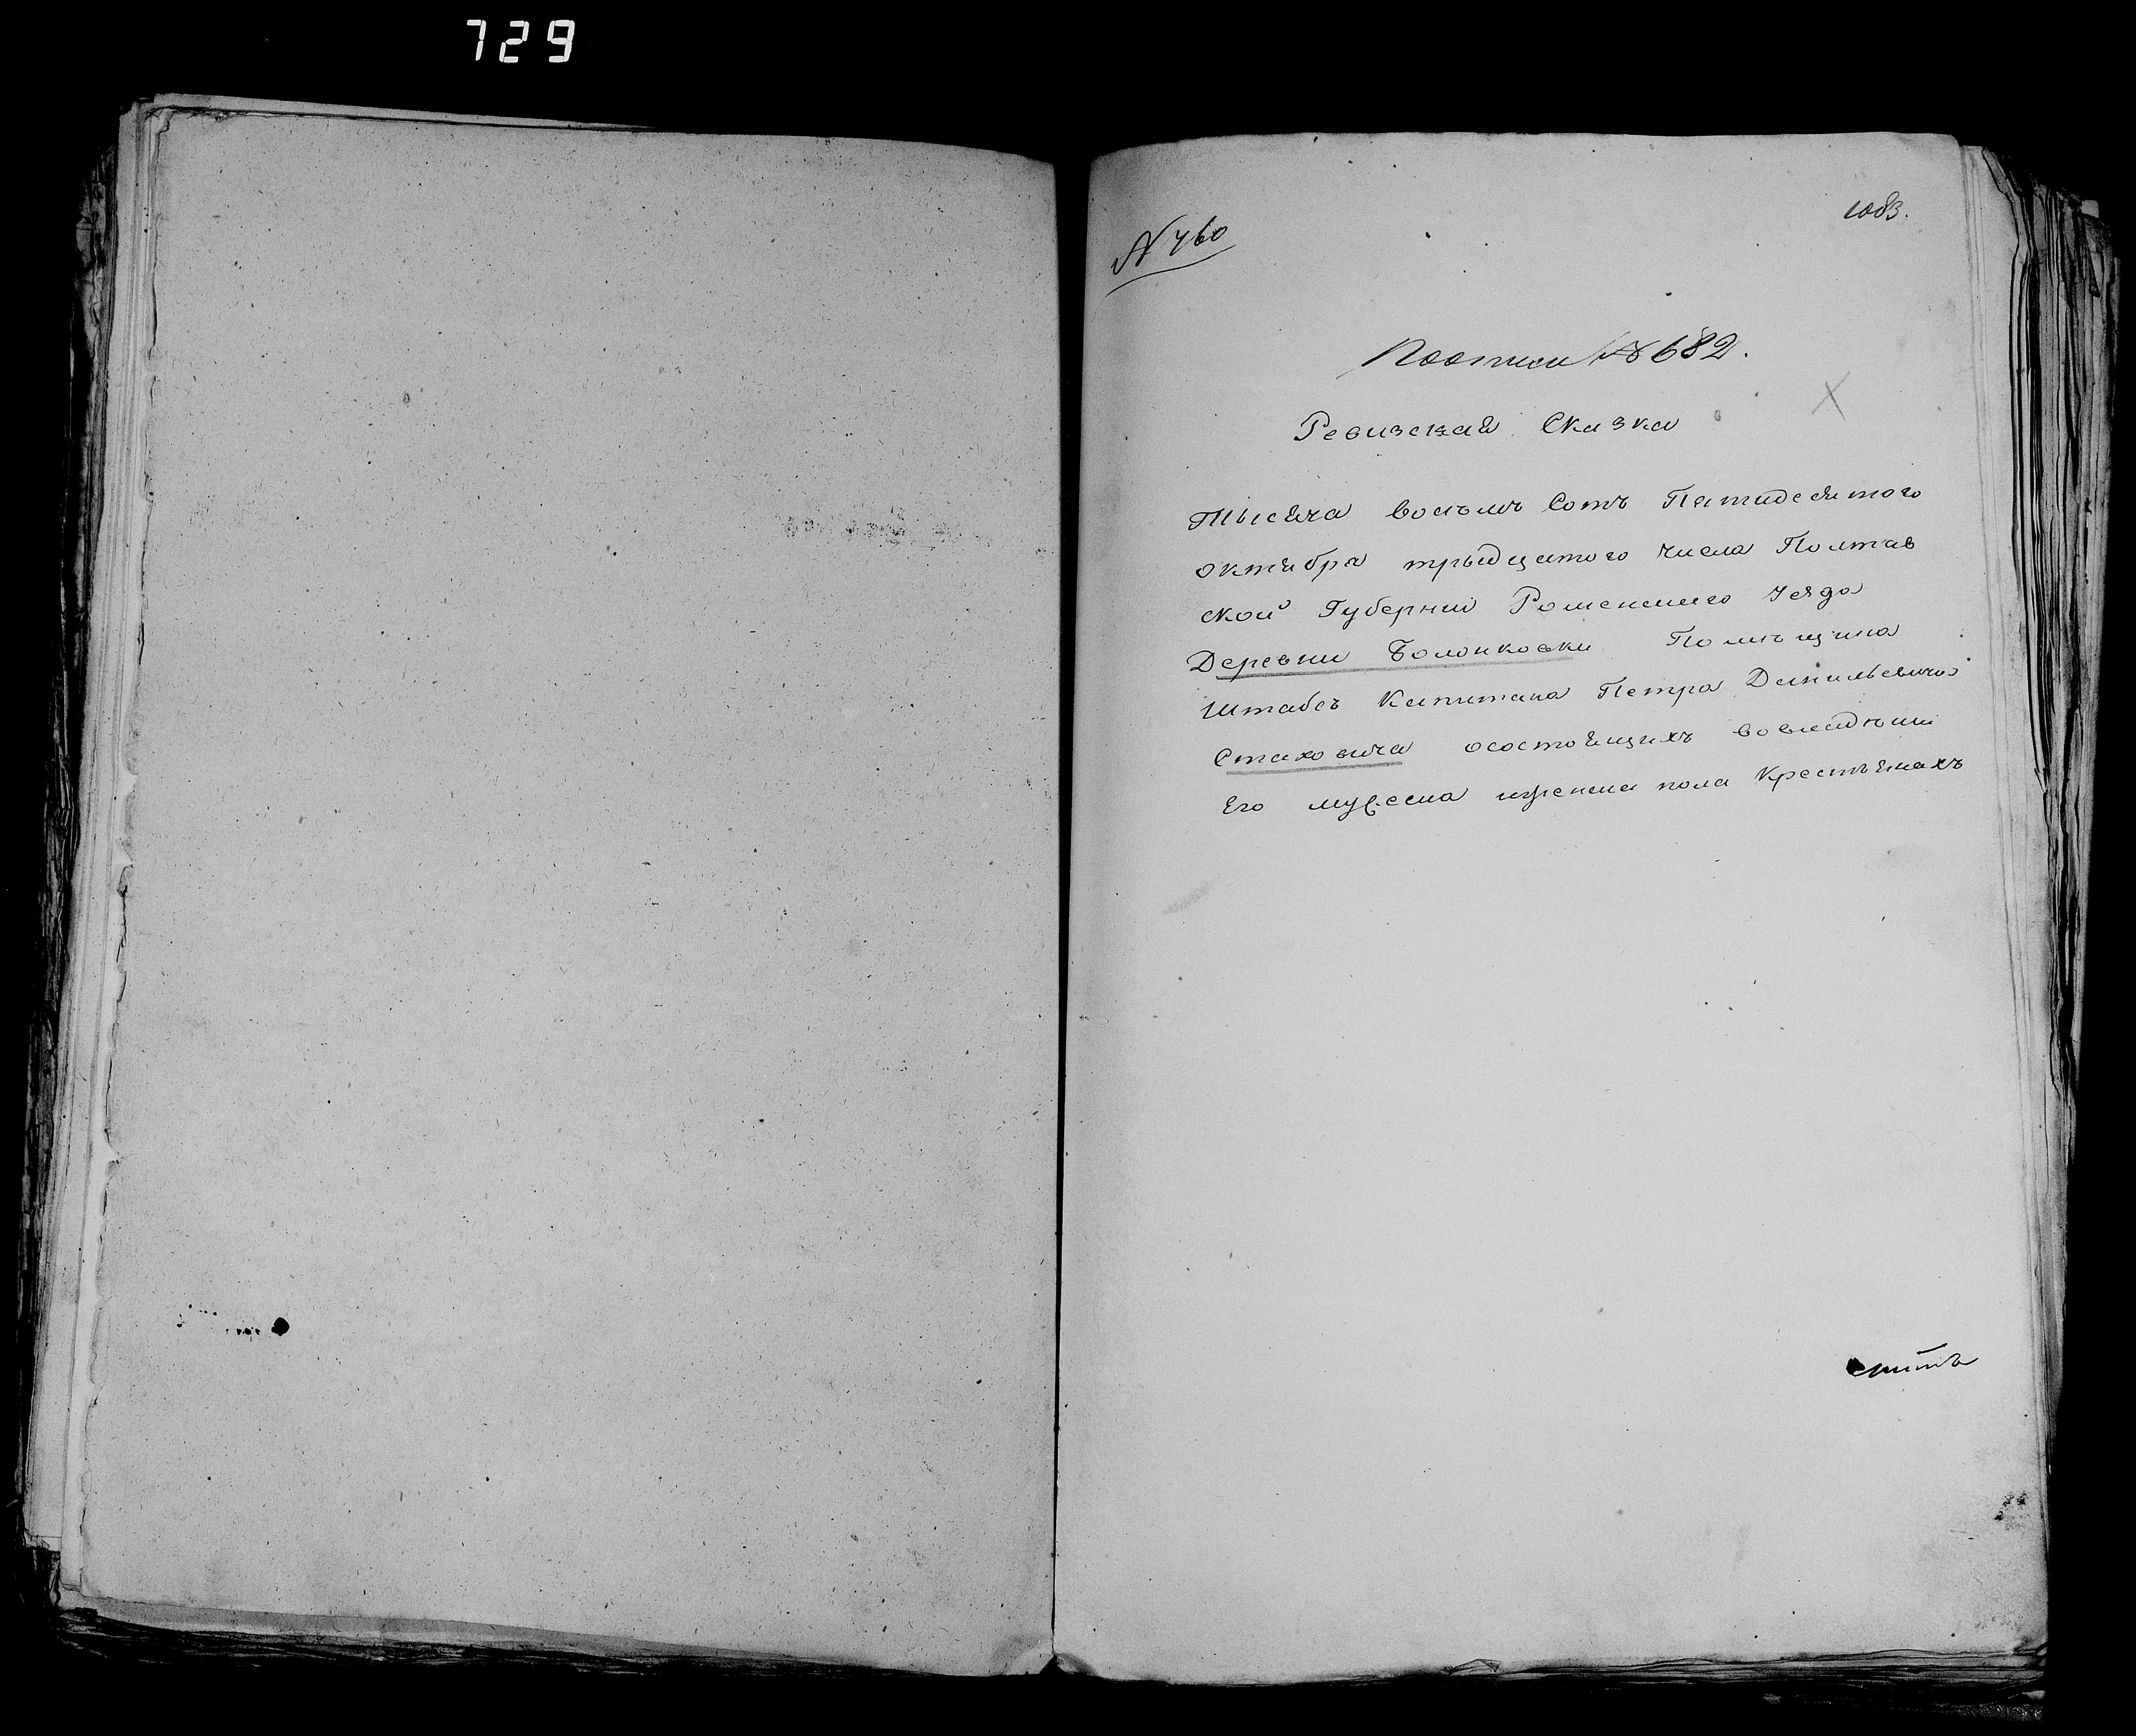 729
1083.
N 760
По описи № 682.
Ревизская Сказка
Тысяча восемъ Сотъ Пятидесятого
октября тридцатого числа Полтав
ской Губернии Роменского уезда
Деревни Болонковки Помѣщика
Штабсъ Капитана Петра Данильевича
Стаховича осостоящихъ вовладѣнии
Его мужеска иженска пола Крестьянахъ